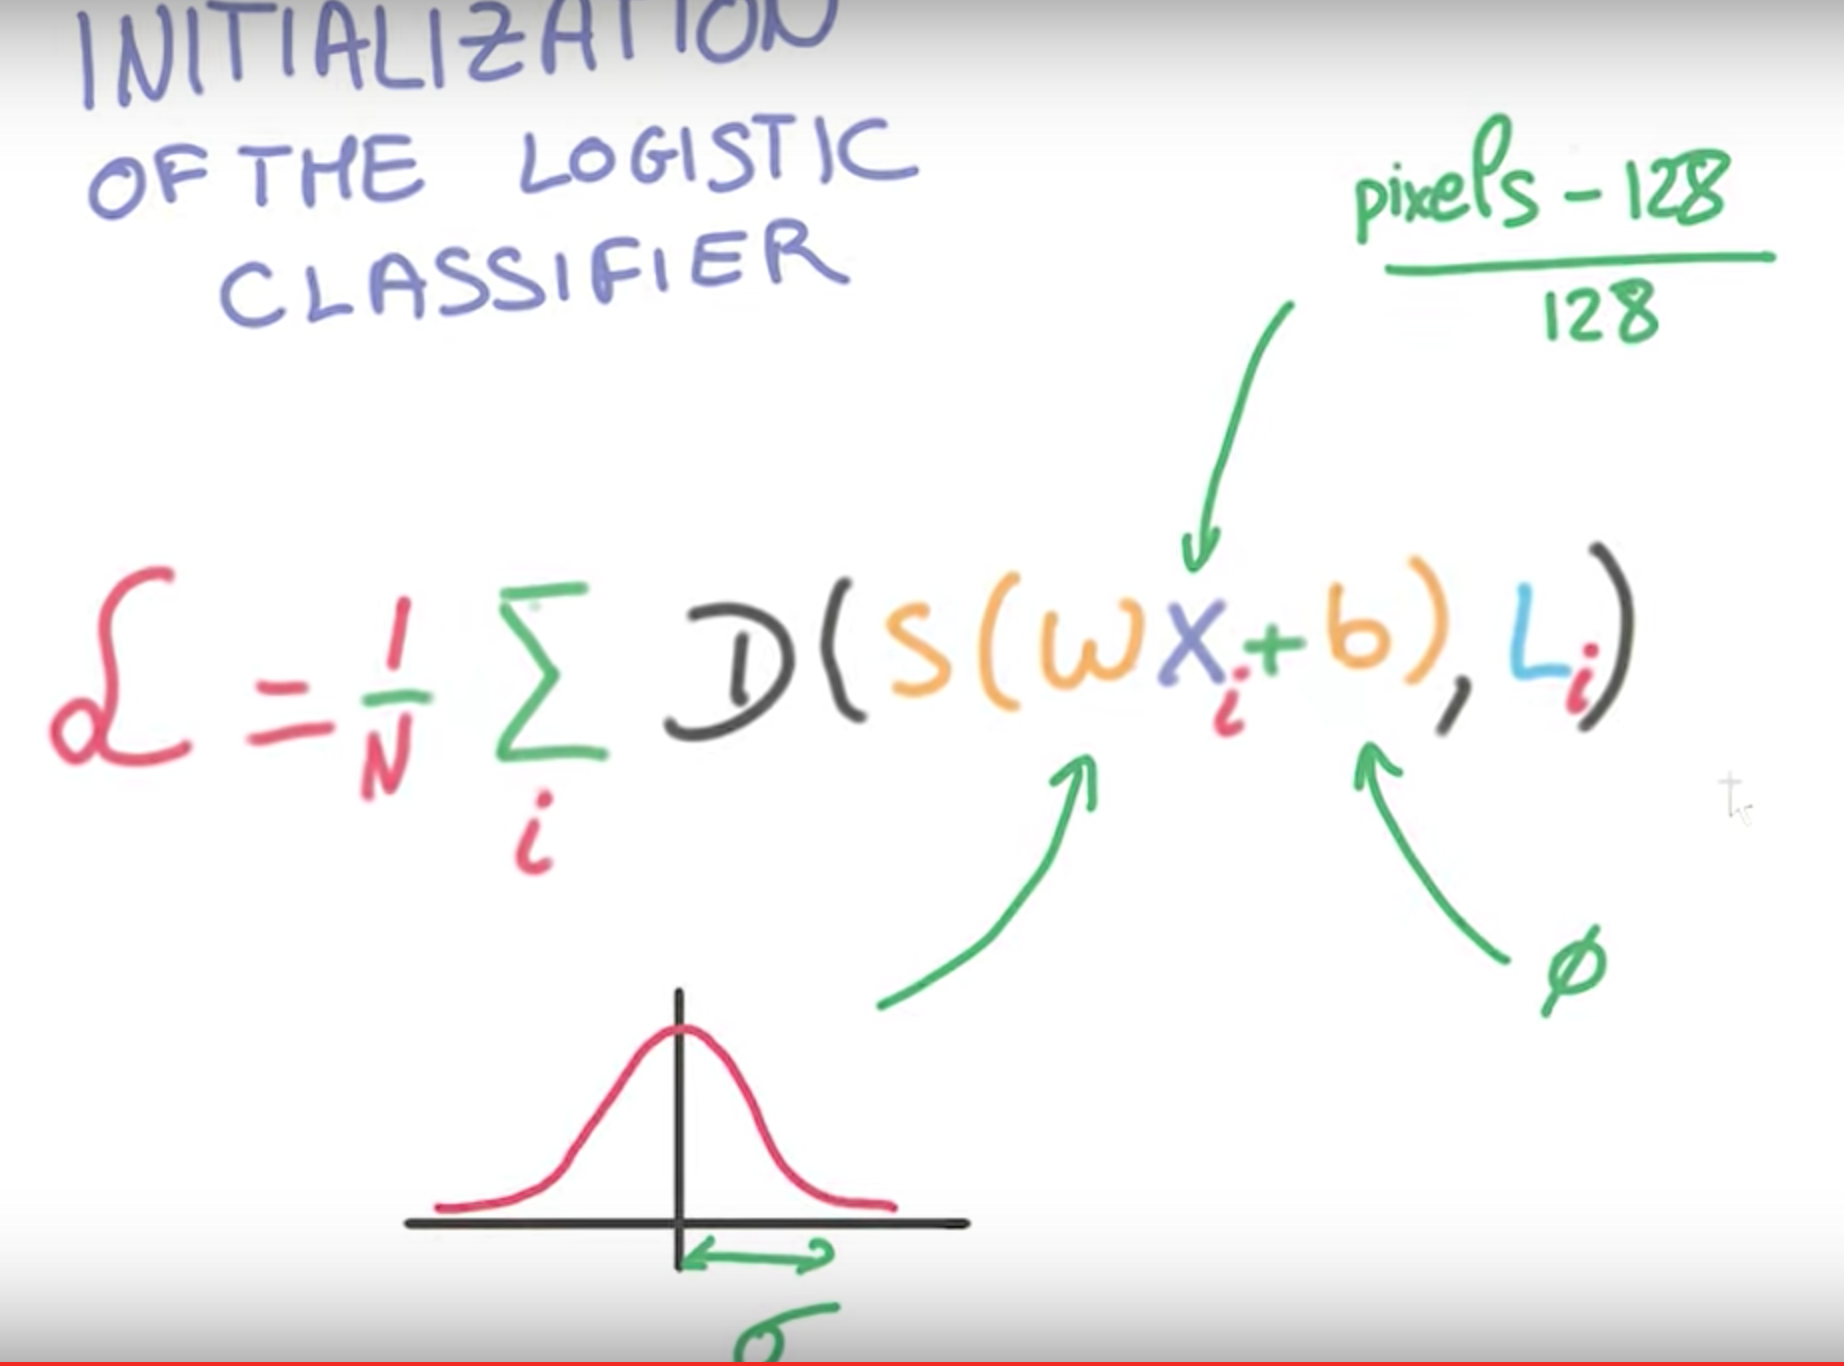 INITIALIZATION
OF THE LOGISTIC
CLASSIFIER
pixels - 128
128
ℒ = 1/N Σ D(S(WXi + b), Li)
i
ϕ
σ